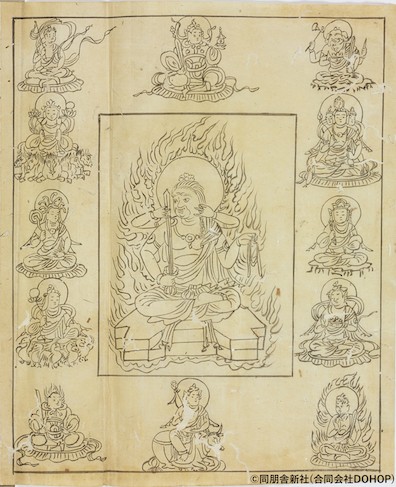 ©同朋舎新社(合同会社DOHOP)